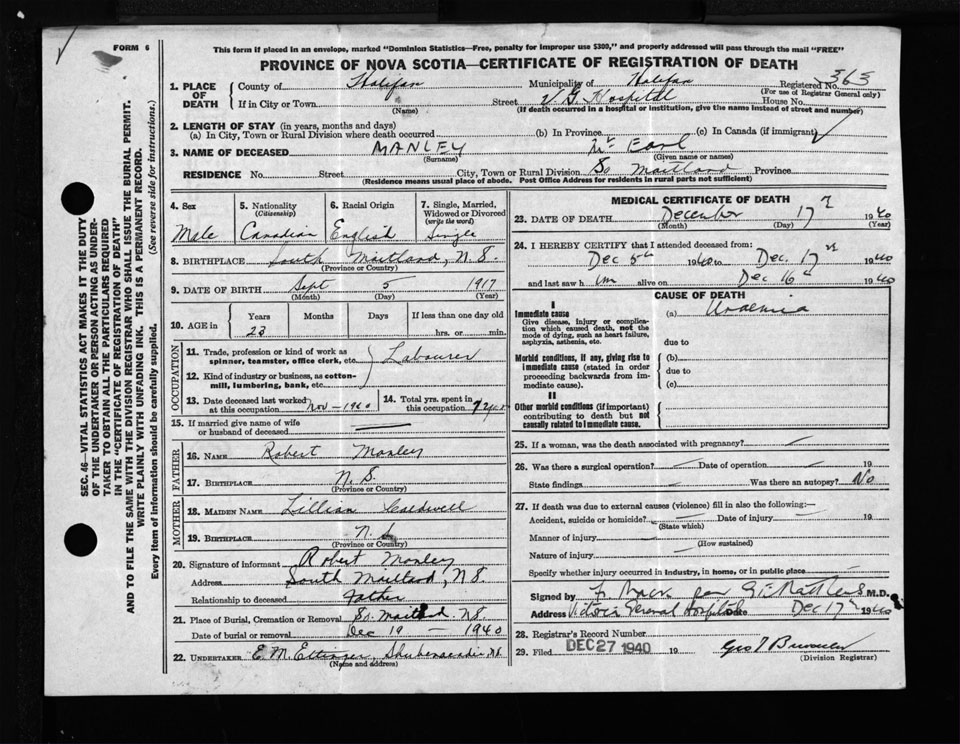 FORM 6
This form if placed in an envelope, marked "Dominion Statistics—Free, penalty for improper use $300," and properly addressed will pass through the mail "FREE"
PROVINCE OF NOVA SCOTIA—CERTIFICATE OF REGISTRATION OF DEATH
SEC. 46—VITAL STATISTICS ACT MAKES IT THE DUTY
OF THE UNDERTAKER OR PERSON ACTING AS UNDER-
TAKER TO OBTAIN ALL THE PARTICULARS REQUIRED
IN THE "CERTIFICATE OF REGISTRATION OF DEATH"
AND TO FILE THE SAME WITH THE DIVISION REGISTRAR WHO SHALL ISSUE THE BURIAL PERMIT.
WRITE PLAINLY WITH UNFADING INK. THIS IS A PERMANENT RECORD.
Every item of information should be carefully supplied. (See reverse side for instructions.)
1. PLACE OF DEATH County of Halifax Municipality of Halifax Registered No. 363
(For use of Registrar General only)
If in City or Town (Name) Street V. G. Hospital House No.
(If death occurred in a hospital or institution, give the name instead of street and number)
2. LENGTH OF STAY (in years, months and days)
(a) In City, Town or Rural Division where death occurred (b) In Province (c) In Canada (if immigrant)
3. NAME OF DECEASED MANLEY Mr Earl
(Surname) (Given name or names)
RESIDENCE No. Street City, Town or Rural Division So Maitland Province
(Residence means usual place of abode. Post Office Address for residents in rural parts not sufficient)
4. Sex Male
5. Nationality (Citizenship) Canadian
6. Racial Origin English
7. Single, Married, Widowed or Divorced (write the word) Single
8. BIRTHPLACE South Maitland, N.S.
(Province or Country)
9. DATE OF BIRTH Sept 5 1917
(Month) (Day) (Year)
10. AGE in Years Months Days If less than one day old
23 hrs. or min.
OCCUPATION
11. Trade, profession or kind of work as spinner, teamster, office clerk, etc. Labourer
12. Kind of industry or business, as cotton-mill, lumbering, bank, etc.
13. Date deceased last worked at this occupation Nov - 1940
14. Total yrs. spent in this occupation
15. If married give name of wife or husband of deceased
FATHER
16. NAME Robert Manley
17. BIRTHPLACE N.S.
(Province or Country)
MOTHER
18. MAIDEN NAME Lillian Caldwell
19. BIRTHPLACE N.S.
(Province or Country)
20. Signature of informant Robert Manley
Address South Maitland, N.S.
Relationship to deceased Father
21. Place of Burial, Cremation or Removal So. Maitland N.S.
Date of burial or removal Dec 19 1940
22. UNDERTAKER E. M. Ettinger, Shubenacadie N.S.
(Name and address)
MEDICAL CERTIFICATE OF DEATH
23. DATE OF DEATH December 17 1940
(Month) (Day) (Year)
24. I HEREBY CERTIFY that I attended deceased from:
Dec 5th 1940 to Dec. 17 1940
and last saw him alive on Dec 16th 1940
CAUSE OF DEATH
I
Immediate cause
Give disease, injury or complication which caused death, not the mode of dying, such as heart failure, asphyxia, asthenia, etc.
(a) Uraemia
due to
Morbid conditions, if any, giving rise to immediate cause (stated in order proceeding backwards from immediate cause).
(b)
due to
(c)
II
Other morbid conditions (if important) contributing to death but not causally related to immediate cause.
25. If a woman, was the death associated with pregnancy?
26. Was there a surgical operation? Date of operation 19
State findings Was there an autopsy? No
27. If death was due to external causes (violence) fill in also the following:—
Accident, suicide or homicide? Date of injury 19
(State which)
Manner of injury
(How sustained)
Nature of injury
Specify whether injury occurred in industry, in home, or in public place
Signed by M.D.
Address Victoria General Hospital Date Dec 17th 1940
28. Registrar's Record Number
29. Filed DEC 27 1940 19
(Division Registrar)